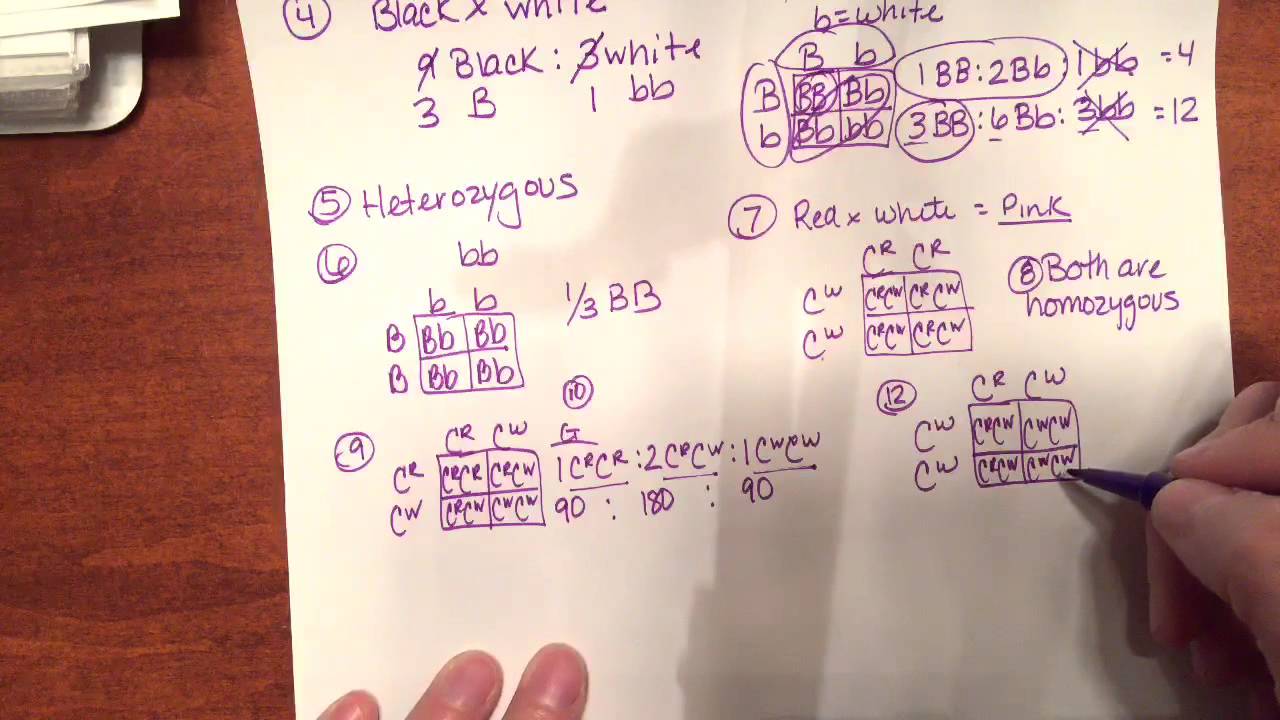 ④ Black x white
9 Black : 3 white
3 B 1 bb
b = white
B b
B BB Bb
b Bb bb
1 BB : 2 Bb : 1 bb = 4
3 BB : 6 Bb : 3 bb = 12
⑤ Heterozygous
⑥ bb
b b
B Bb Bb
B Bb Bb
1/3 BB
⑦ Red x white = Pink
Cᴿ Cᴿ
Cᵂ CᴿCᵂ CᴿCᵂ
Cᵂ CᴿCᵂ CᴿCᵂ
⑧ Both are
homozygous
⑨ Cᴿ Cᵂ
Cᴿ CᴿCᴿ CᴿCᵂ
Cᵂ CᴿCᵂ CᵂCᵂ
⑩
G
1 CᴿCᴿ : 2 CᴿCᵂ : 1 CᵂCᵂ
90 : 180 : 90
⑫ Cᴿ Cᵂ
Cᵂ CᴿCᵂ CᵂCᵂ
Cᵂ CᴿCᵂ CᵂCᵂ